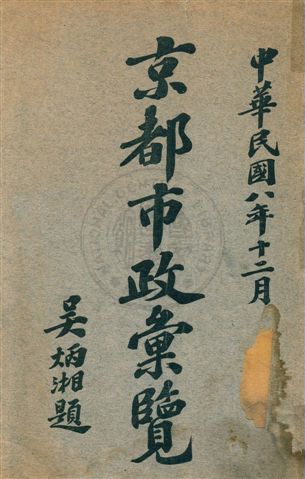 中華民國八年十二月
京都市政彙覽
吳炳湘題